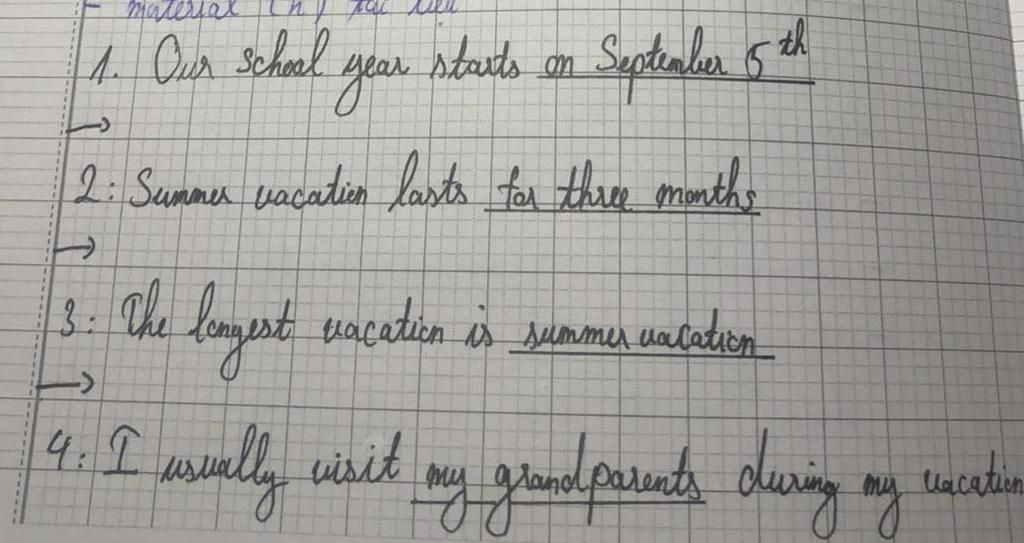 - material (n) tài liệu
1. Our school year starts on September 5th
→
2: Summer vacation lasts for three months
→
3: The longest vacation is summer vacation
→
4: I usually visit my grandparents during my vacation